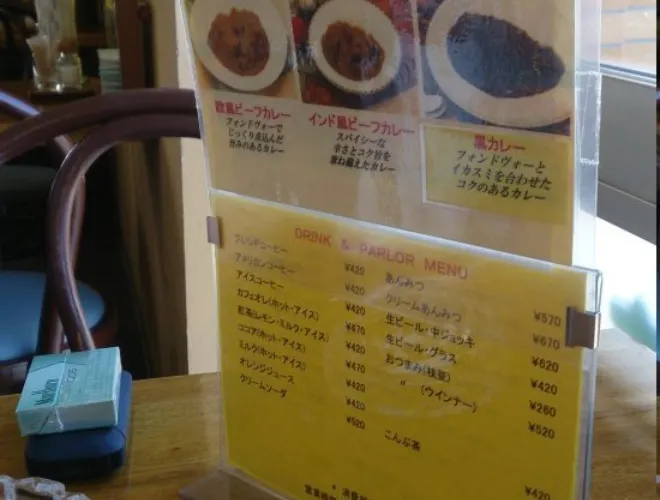 欧風ビーフカレー
フォンドヴォーで
じっくり煮込んだ
旨みのあるカレー
インド風ビーフカレー
スパイシーな
辛さとコク旨を
兼ね備えたカレー
黒カレー
フォンドヴォーと
イカスミを合わせた
コクのあるカレー
DRINK & PARLOR MENU
ブレンドコーヒー ¥420
アメリカンコーヒー ¥420
アイスコーヒー ¥420
カフェオレ(ホット・アイス) ¥470
紅茶(レモン・ミルク・アイス) ¥420
ココア(ホット・アイス) ¥470
ミルク(ホット・アイス) ¥420
オレンジジュース ¥420
クリームソーダ ¥520
あんみつ ¥570
クリームあんみつ ¥670
生ビール・中ジョッキ ¥620
生ビール・グラス ¥420
おつまみ(枝豆) ¥260
〃 (ウインナー) ¥520
こんぶ茶 ¥420
Marlboro